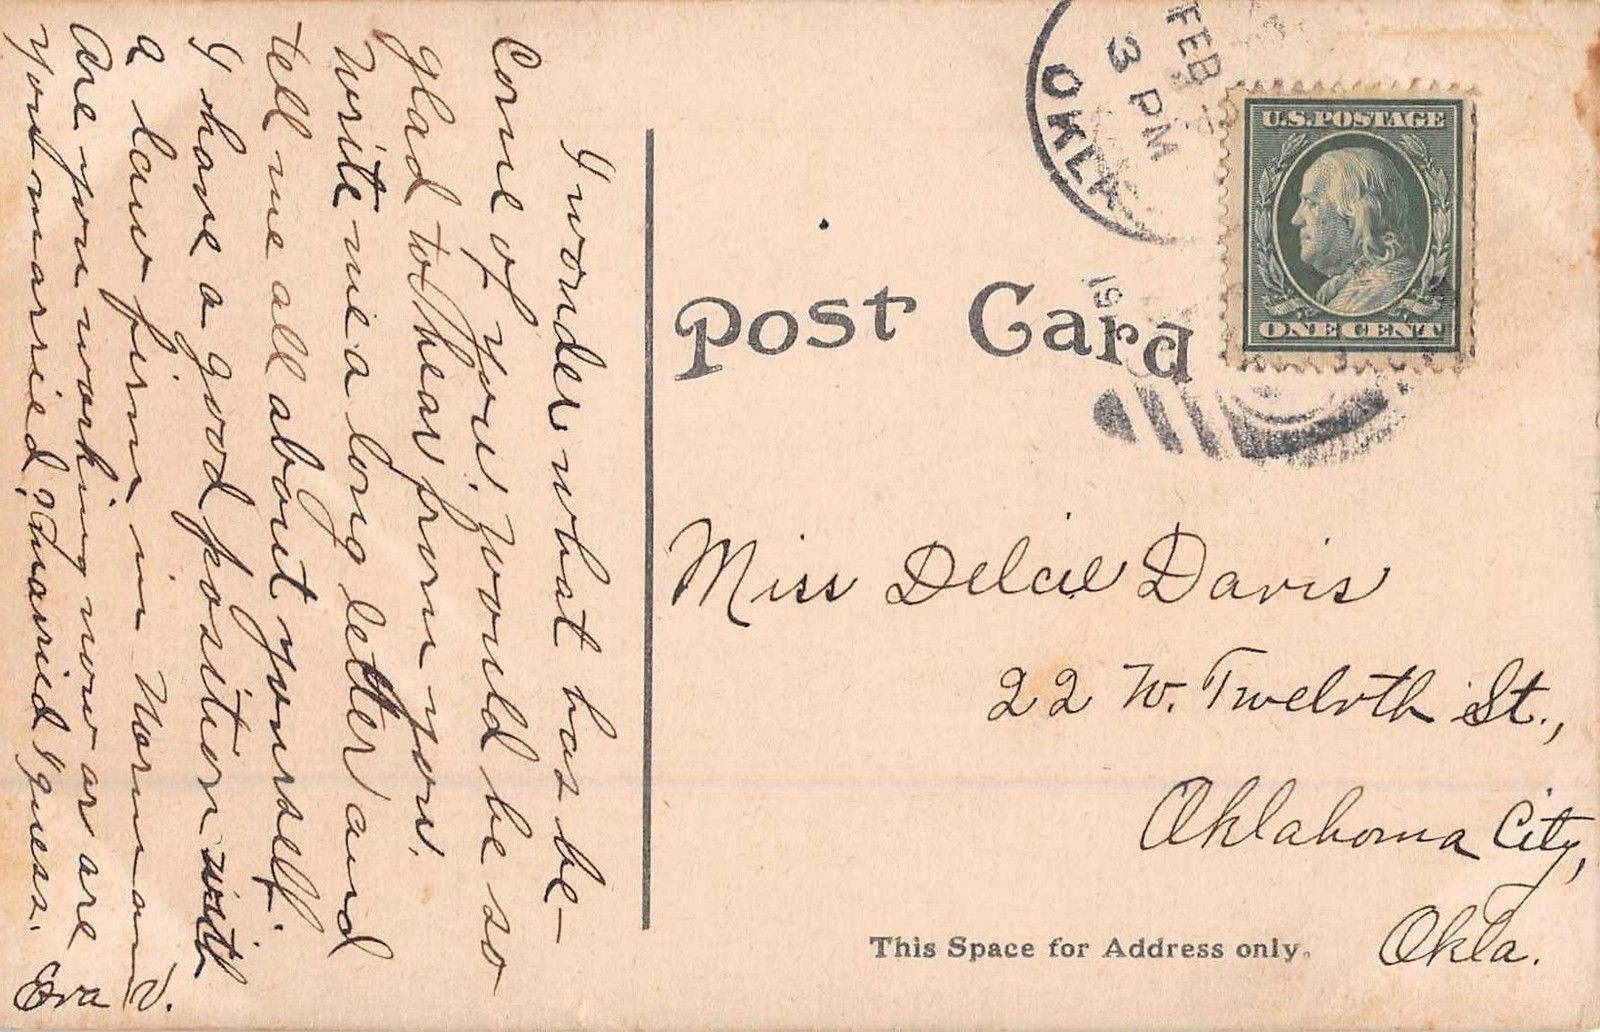 I wonder what has be-
come of you. Would be so
glad to hear from you.
Write me a long letter and
tell me all about yourself.
I have a good position with
a law firm in Norman
Are you working now or are
you married? Married I guess.
Eva V.
FEB
3 PM
OKLA
19
U.S. POSTAGE
ONE CENT
Post Card
Miss Delcie Davis
22 W. Twelvth St.,
Oklahoma City,
Okla.
This Space for Address only.